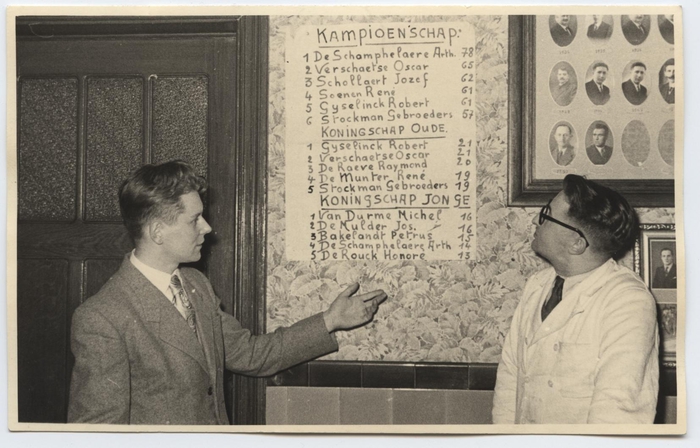 KAMPIOENSCHAP.
1 De Schamphelaere Arth. 78
2 Verschaetse Oscar 65
3 Schollaert Jozef 62
4 Soenen René 61
5 Gyselinck Robert 61
6 Stockman Gebroeders 57
KONINGSCHAP OUDE.
1 Gyselinck Robert 21
2 Verschaetse Oscar 21
3 De Raeve Raymond 20
4 De Munter René 19
5 Stockman Gebroeders 19
KONINGSCHAP JONGE
1 Van Durme Michel 16
2 De Mulder Jos. 16
3 Bakelandt Petrus 15
4 De Schamphelaere Arth 14
5 De Rouck Honoré 13